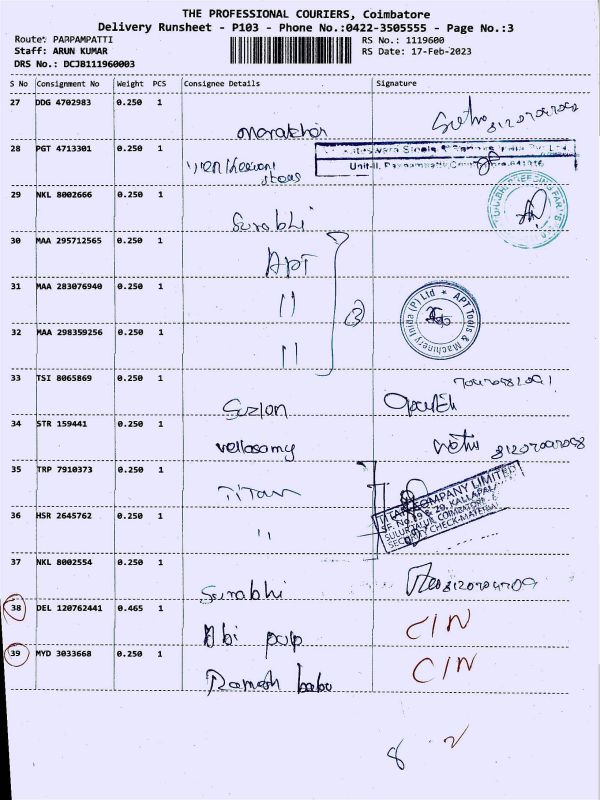 THE PROFESSIONAL COURIERS, Coimbatore
Delivery Runsheet - P103 - Phone No.:0422-3505555 - Page No.:3
Route: PAPPAMPATTI
Staff: ARUN KUMAR
DRS No.: DCJB111960003
RS No.: 1119600
RS Date: 17-Feb-2023
S No Consignment No Weight PCS Consignee Details Signature
27 DDG 4702983 0.250 1
28 PGT 4713301 0.250 1
Unit-II, Pappampatti, Coimbatore-641016
29 NKL 8002666 0.250 1
Surabhi
30 MAA 295712565 0.250 1
APT
31 MAA 283076940 0.250 1
11
3
APT Tools & Machinery India (P) Ltd
32 MAA 298359256 0.250 1
11
33 TSI 8065869 0.250 1
Suzlon
34 STR 159441 0.250 1
vellasamy
35 TRP 7910373 0.250 1
Titan
TITAN COMPANY LIMITED
SULUR TALUK, COIMBATORE
SECURITY CHECK-MATERIAL
36 HSR 2645762 0.250 1
"
37 NKL 8002554 0.250 1
Surabhi
38 DEL 120762441 0.465 1
Abi pulp C/N
39 MYD 3033668 0.250 1
Ramesh babu C/N
8 - 2